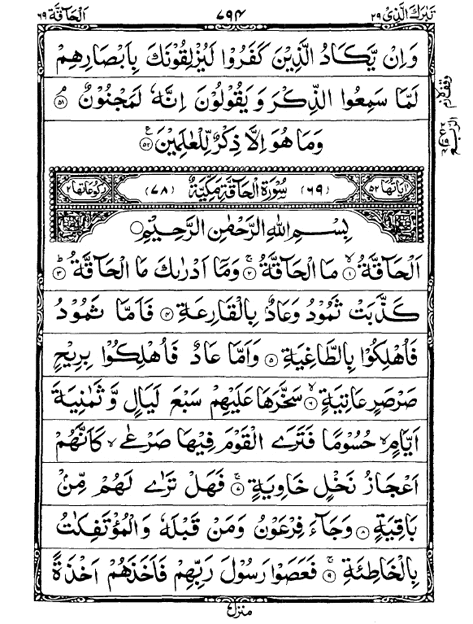 تَبٰرَكَ الَّذِىْ ٢٩ ٧٩٤ اَلْحَآقَّة ٦٩
وَاِنْ يَّكَادُ الَّذِيْنَ كَفَرُوْا لَيُزْلِقُوْنَكَ بِاَبْصَارِهِمْ
لَمَّا سَمِعُوا الذِّكْرَ وَيَقُوْلُوْنَ اِنَّهٗ لَمَجْنُوْنٌ ۘ ٥١
وَمَا هُوَ اِلَّا ذِكْرٌ لِّلْعٰلَمِيْنَ ٥٢
اٰيَاتُهَا ٥٢ (٦٩) سُوْرَةُ الْحَآقَّةِ مَكِّيَّةٌ (٧٨) رُكُوْعَاتُهَا ٢
بِسْمِ اللّٰهِ الرَّحْمٰنِ الرَّحِيْمِ
اَلْحَآقَّةُ ۙ ١ مَا الْحَآقَّةُ ۚ ٢ وَمَآ اَدْرٰىكَ مَا الْحَآقَّةُ ؕ ٣
كَذَّبَتْ ثَمُوْدُ وَعَادٌۢ بِالْقَارِعَةِ ٤ فَاَمَّا ثَمُوْدُ
فَاُهْلِكُوْا بِالطَّاغِيَةِ ٥ وَاَمَّا عَادٌ فَاُهْلِكُوْا بِرِيْحٍ
صَرْصَرٍ عَاتِيَةٍ ۙ ٦ سَخَّرَهَا عَلَيْهِمْ سَبْعَ لَيَالٍ وَّثَمٰنِيَةَ
اَيَّامٍ ۙ حُسُوْمًا فَتَرَى الْقَوْمَ فِيْهَا صَرْعٰى ۙ كَاَنَّهُمْ
اَعْجَازُ نَخْلٍ خَاوِيَةٍ ۚ ٧ فَهَلْ تَرٰى لَهُمْ مِّنْۢ
بَاقِيَةٍ ٨ وَجَآءَ فِرْعَوْنُ وَمَنْ قَبْلَهٗ وَالْمُؤْتَفِكٰتُ
بِالْخَاطِئَةِ ۚ ٩ فَعَصَوْا رَسُوْلَ رَبِّهِمْ فَاَخَذَهُمْ اَخْذَةً
منزل ٧